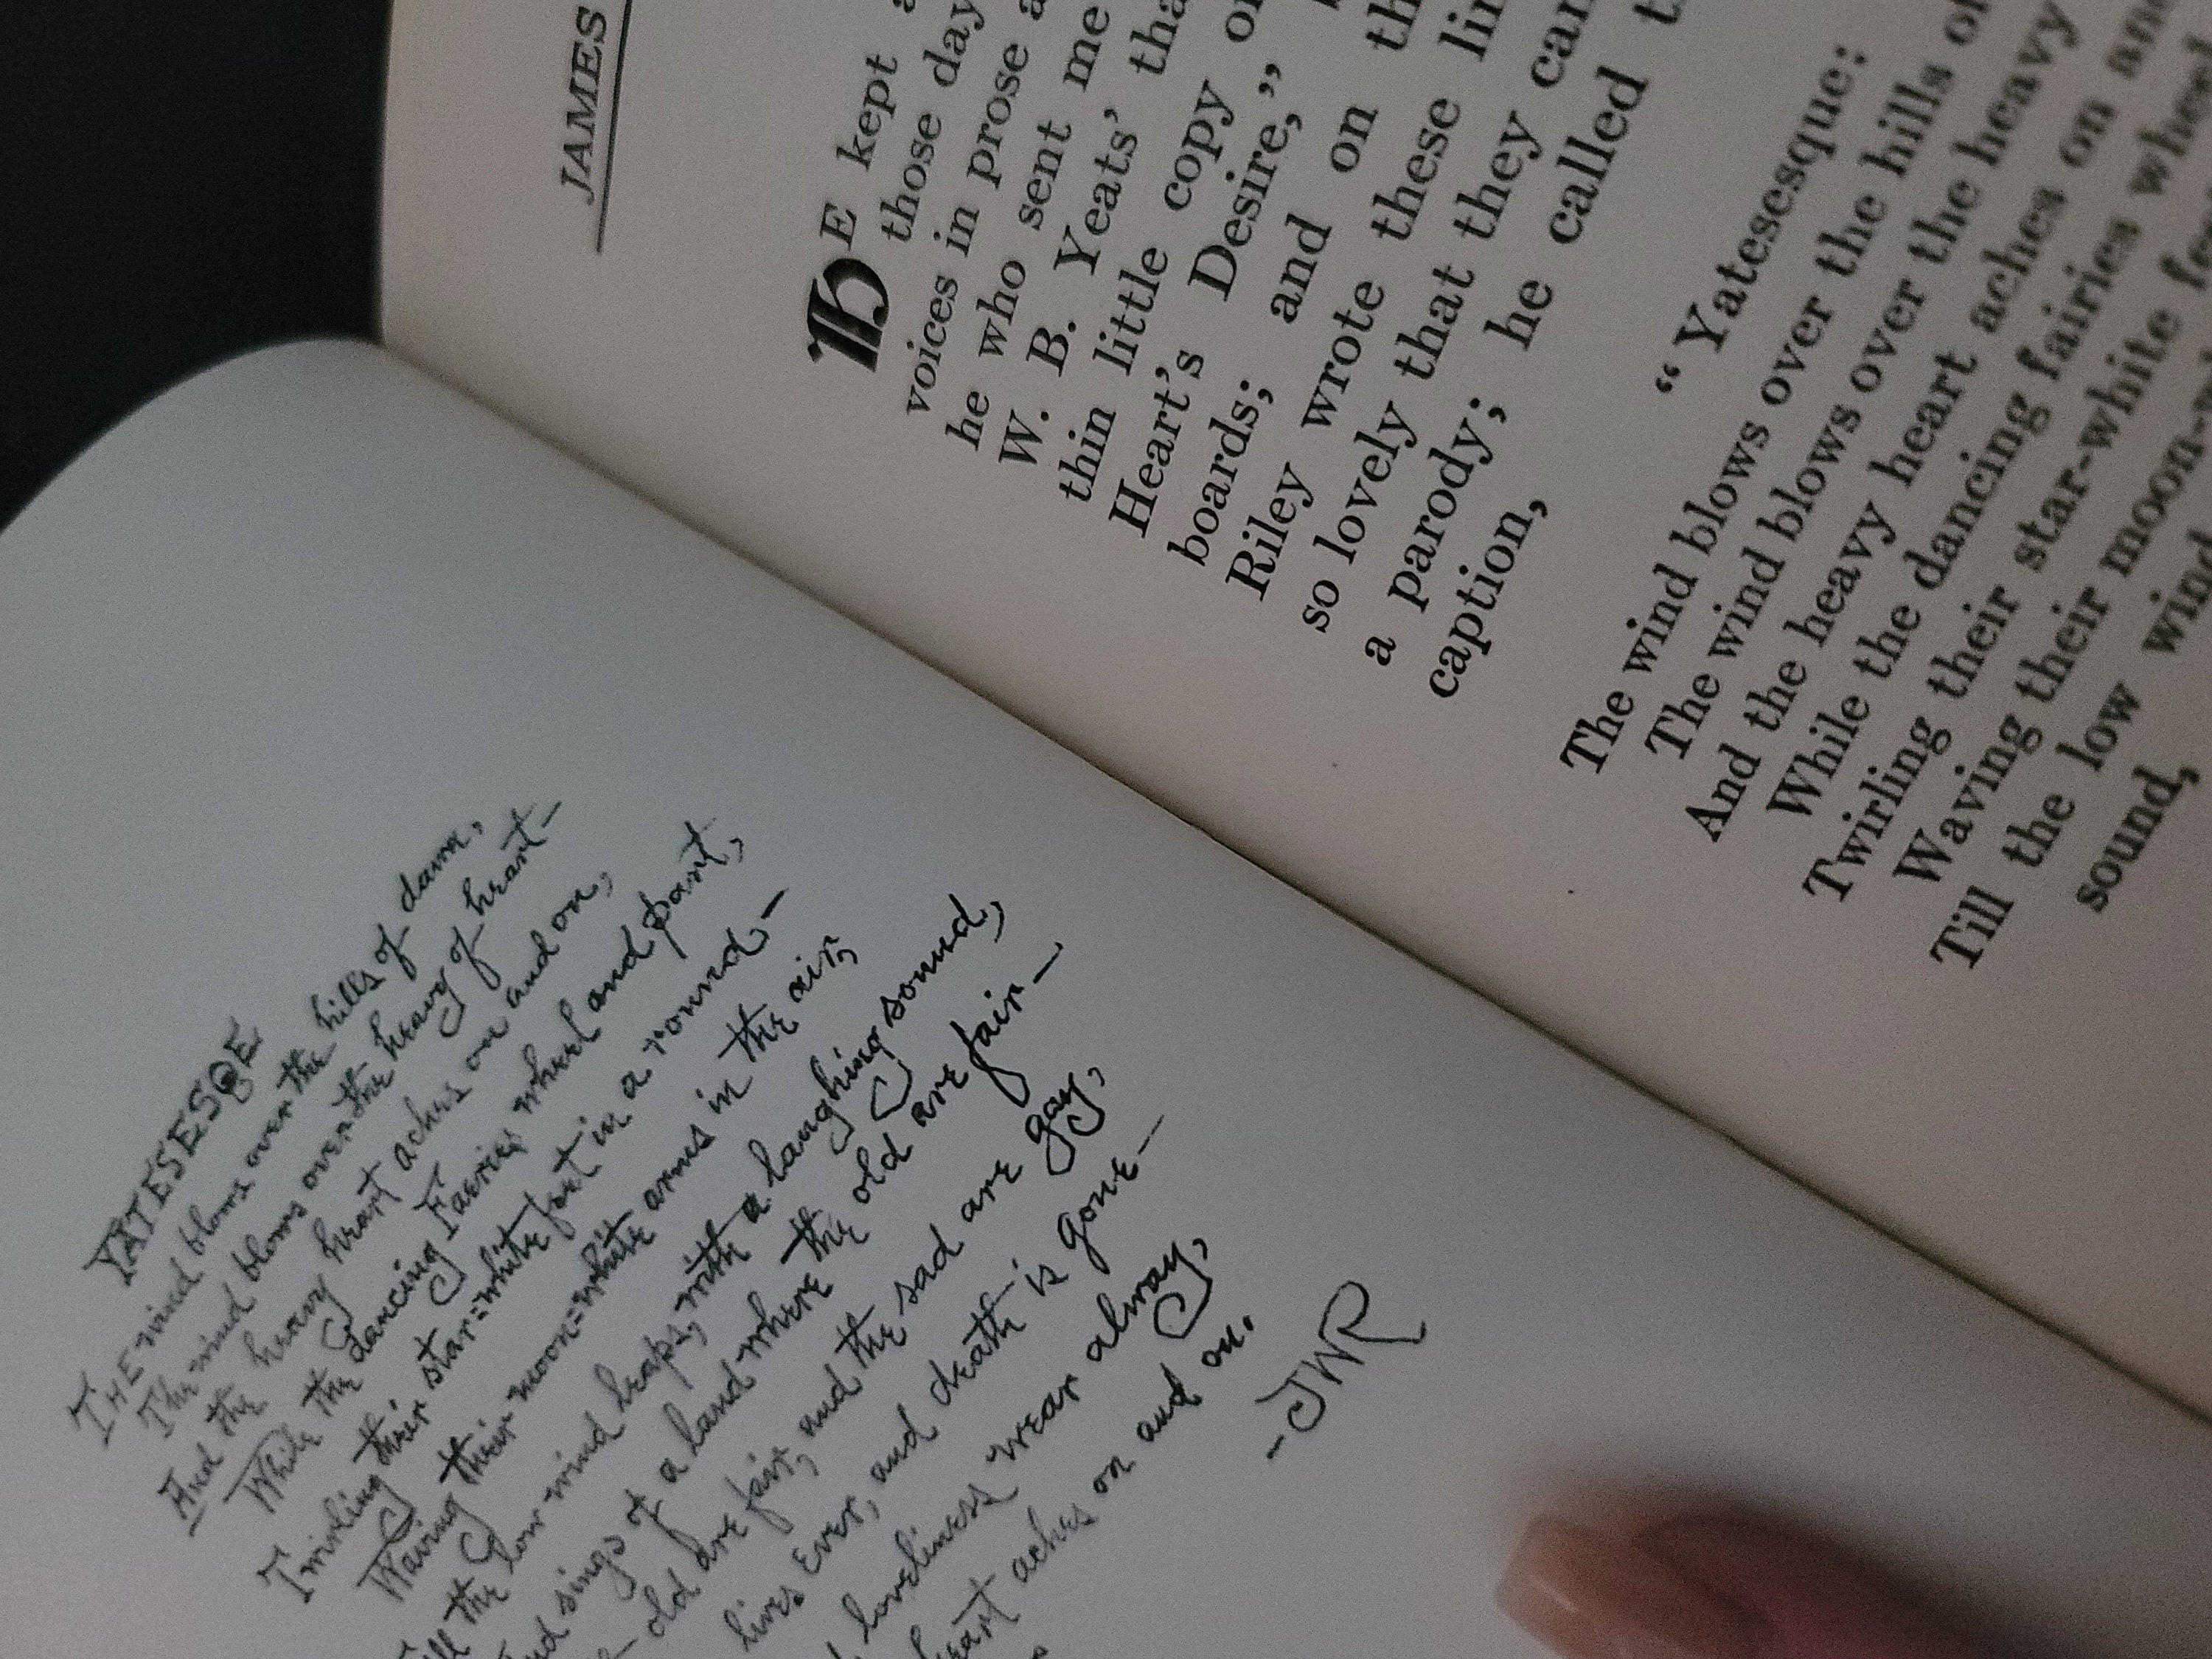 YATESESQE
THE wind blows over the hills of dawn,
The wind blows over the heavy of heart—
And the heavy heart aches on and on,
While the dancing Faeries wheel and part,
Twirling their star=white feet in a round—
Waving their moon=white arms in the air,
the low wind heaps, with a laughing sound,
sings of a land where the old are fair—
old are fair, and the sad are gay,
lives ever, and death is gone—
loveliness wear alway,
aches on and on.
-JWR
JAMES
HE kept
those day
voices in prose
he who sent me
W. B. Yeats' tha
thin little copy
Heart's Desire,"
boards; and on th
Riley wrote these
so lovely that they can
a parody; he called
caption,
"Yatesesque:
The wind blows over the hills of
The wind blows over the heavy
And the heavy heart aches on
While the dancing fairies wheel
Twirling their star-white
Waving their moon-
Till the low wind
sound,